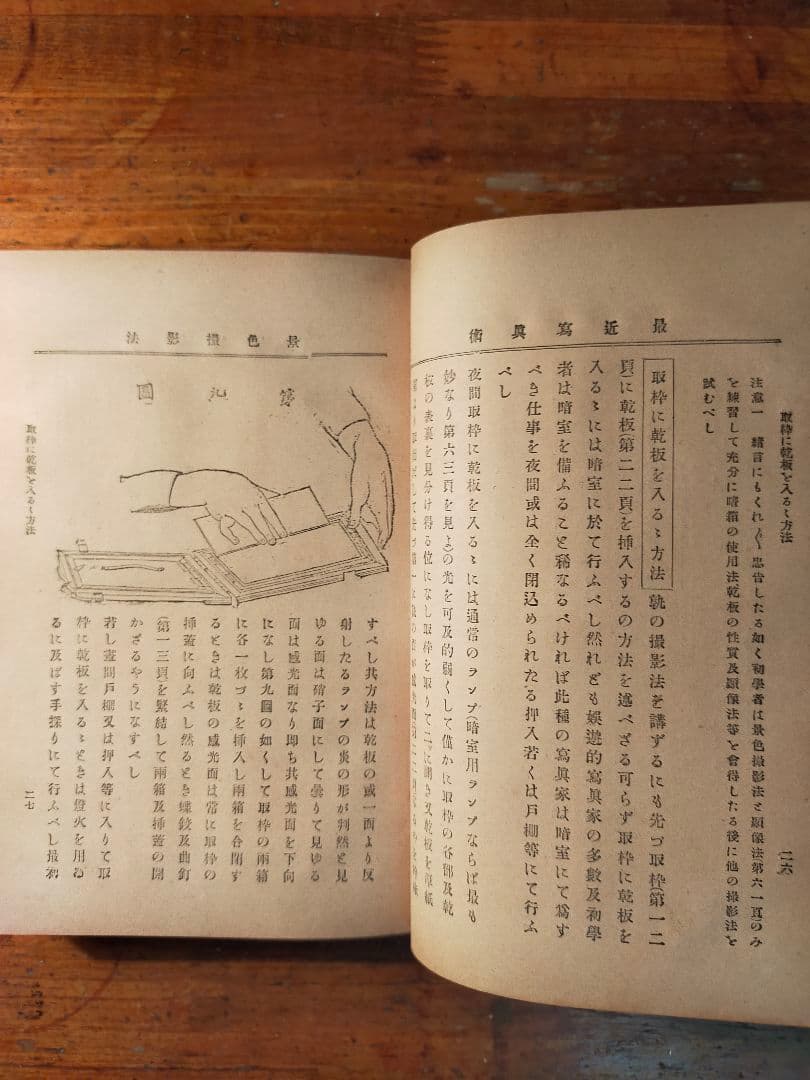 最近寫眞術
取枠に乾板を入るゝ方法
二六
注意一 緒言にもくれ〴〵忠告したる如く初學者は景色撮影法と顯像法第六一頁)のみ
を練習して充分に暗箱の使用法乾板の性質及顯像法等を會得したる後に他の撮影法を
試むべし
取枠に乾板を入るゝ方法 孰の撮影法を講ずるにも先づ取枠(第一二
頁)に乾板(第二二頁)を挿入するの方法を述べざる可らず取枠に乾板を
入るゝには暗室に於て行ふべし然れども娯遊的寫眞家の多數及初學
者は暗室を備ふること稀なるべければ此種の寫眞家は暗室にて爲す
べき仕事を夜間或は全く閉込められたる押入若くは戸棚等にて行ふ
べし
夜間取枠に乾板を入るゝには通常のランプ(暗室用ランプならば最も
妙なり第六三頁を見よ)の光を可及的弱くして僅かに取枠の各部及乾
板の表裏を見分け得る位になし取枠を取りて二つに開き又乾板を厚紙
景色撮影法
第九圖
すべし其方法は乾板の或一面より反
射したるランプの炎の形が判然と見
ゆる面は硝子面にして曇りて見ゆる
面は感光面なり即ち其感光面を下向
になし第九圖の如くして取枠の兩箱
に各一枚づゝを挿入し兩箱を合閉す
るときは乾板の感光面は常に取枠の
挿蓋に向ふべし然るとき蝶鉸及曲釘
(第一三頁)を緊結して兩箱及挿蓋の開
かざるやうになすべし
若し晝間戸棚又は押入等に入りて取
枠に乾板を入るゝときは燈火を用ゐ
るに及ばず手探りにて行ふべし最初
取枠に乾板を入るゝ方法
二七